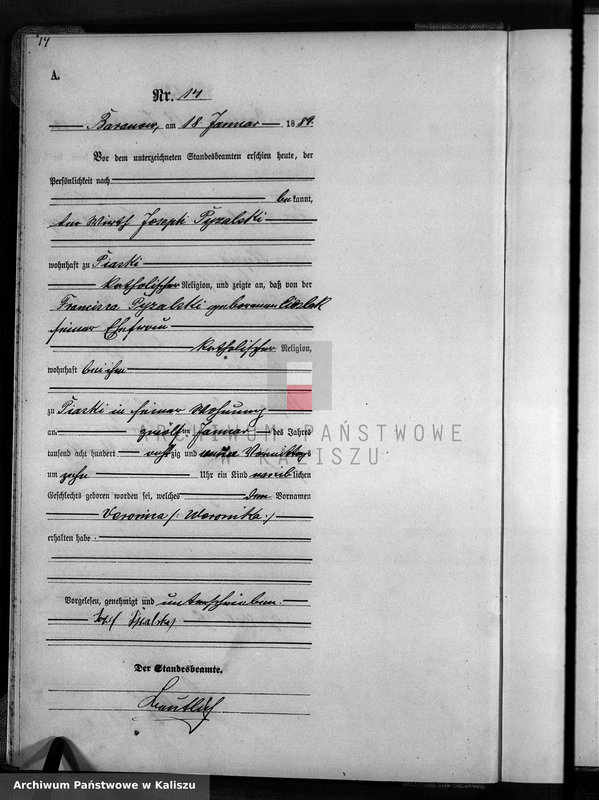 14
A.
Nr. 14
Baranow, am 18 Januar 1889.
Vor dem unterzeichneten Standesbeamten erschien heute, der
Persönlichkeit nach
bekannt,
der Wirth Joseph Pyzalski
wohnhaft zu Piaski
katholischer Religion, und zeigte an, daß von der
Francisca Pyzalski geborenen
seiner Ehefrau
katholischer Religion,
wohnhaft bei ihm
zu Piaski in seiner Wohnung
am zwölften Januar des Jahres
tausend acht hundert achtzig und neun Vormittags
um zehn Uhr ein Kind weiblichen
Geschlechts geboren worden sei, welches den Vornamen
Veronica (: Weronika :)
erhalten habe.
Vorgelesen, genehmigt und unterschrieben.
Der Standesbeamte.
ARCHIWUM PAŃSTWOWE
W KALISZU
Archiwum Państwowe w Kaliszu